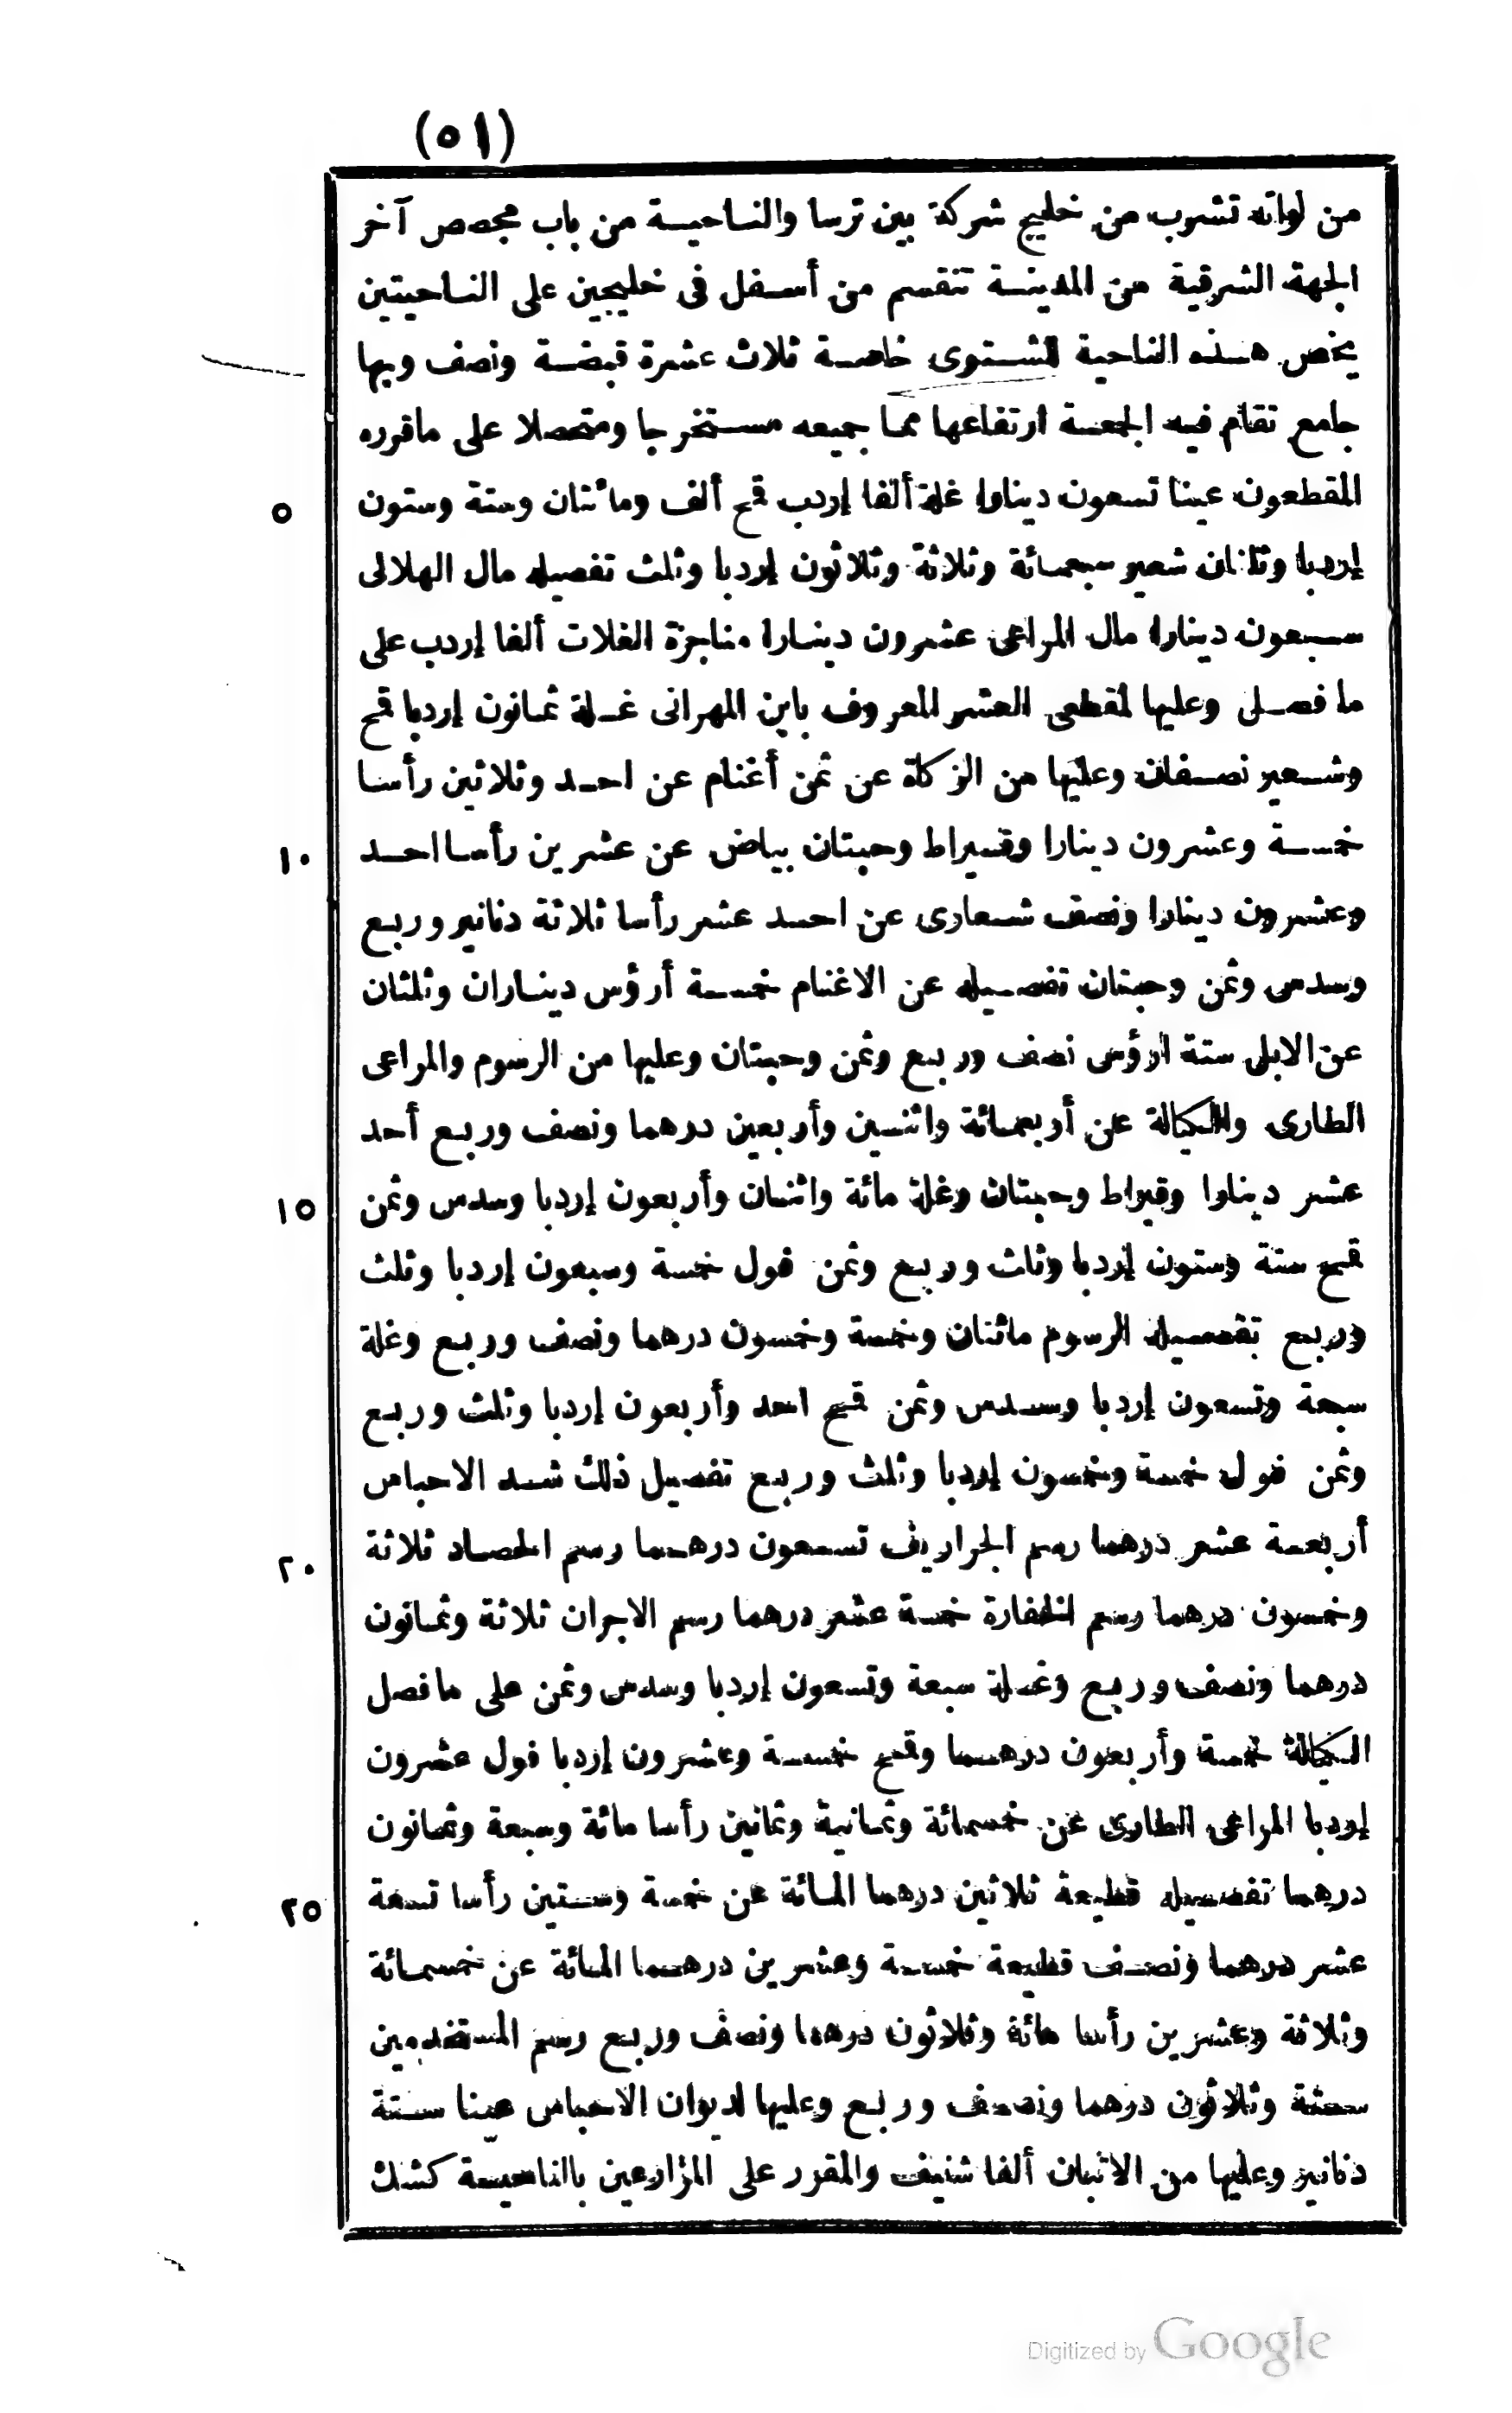 (٥١)
من لواته تشرب من خليج شركة بين ترسا والناحية من باب مجصص آخر
الجهة الشرقية من المدينة تنقسم من أسفل فى خليجين على الناحيتين
يخص هذه الناحية لشتوى خاصة ثلاث عشرة قبضة ونصف وبها
جامع تقام فيه الجمعة ارتفاعها مما جميعه مستخرجا ومتحصلا على ماقرره
المقطعون عينا تسعون دينارا غلة ألفا إردب قمح ألف ومائتان وستة وستون ٥
إردبا وثلثان شعير سبعمائة وثلاثة وثلاثون إردبا وثلث تفصيله مال الهلالى
سبعون دينارا مال المراعى عشرون دينارا مناجزة الغلات ألفا إردب على
ما فصل وعليها لمقطعى العشر المعروف بابن المهرانى غلة ثمانون إردبا قمح
وشعير نصفان وعليها من الزكاة عن ثمن أغنام عن احد وثلاثين رأسا
خمسة وعشرون دينارا وقيراط وحبتان بياض عن عشرين رأسا احد ١٠
وعشرون دينارا ونصف شعارى عن احد عشر رأسا ثلاثة دنانير وربع
وسدس وثمن وحبتان تفصيله عن الاغنام خمسة أرؤس ديناران وثلثان
عن الابل ستة ارؤس نصف وربع وثمن وحبتان وعليها من الرسوم والمراعى
الطارى والكيالة عن أربعمائة واثنين وأربعين درهما ونصف وربع أحد
عشر دينارا وقيراط وحبتان وغلة مائة واثنان وأربعون إردبا وسدس وثمن ١٥
قمح ستة وستون إردبا وثلث وربع وثمن فول خمسة وسبعون إردبا وثلث
وربع تفصيله الرسوم مائتان وخمسة وخمسون درهما ونصف وربع وغلة
سبعة وتسعون إردبا وسدس وثمن قمح احد وأربعون إردبا وثلث وربع
وثمن فول خمسة وخمسون إردبا وثلث وربع تفصيل ذلك شد الاحباس
أربعة عشر درهما رسم الجراريف تسعون درهما رسم الحصاد ثلاثة ٢٠
وخمسون درهما رسم الخفارة خمسة عشر درهما رسم الاجران ثلاثة وثمانون
درهما ونصف وربع وغلة سبعة وتسعون إردبا وسدس وثمن على ما فصل
الكيالة خمسة وأربعون درهما وقمح خمسة وعشرون إردبا فول عشرون
إردبا المراعى الطارى عن خمسمائة وثمانية وثمانين رأسا مائة وسبعة وثمانون
درهما تفصيله قطيعة ثلاثين درهما المائة عن خمسة وستين رأسا تسعة ٢٥
عشر درهما ونصف قطيعة خمسة وعشرين درهما المائة عن خمسمائة
وثلاثة وعشرين رأسا مائة وثلاثون درهما ونصف وربع رسم المستخدمين
ستة وثلاثون درهما ونصف وربع وعليها لديوان الاحباس عينا ستة
دنانير وعليها من الاتبان ألفا شنيف والمقرر على المزارعين بالناحية كشك
Digitized by Google